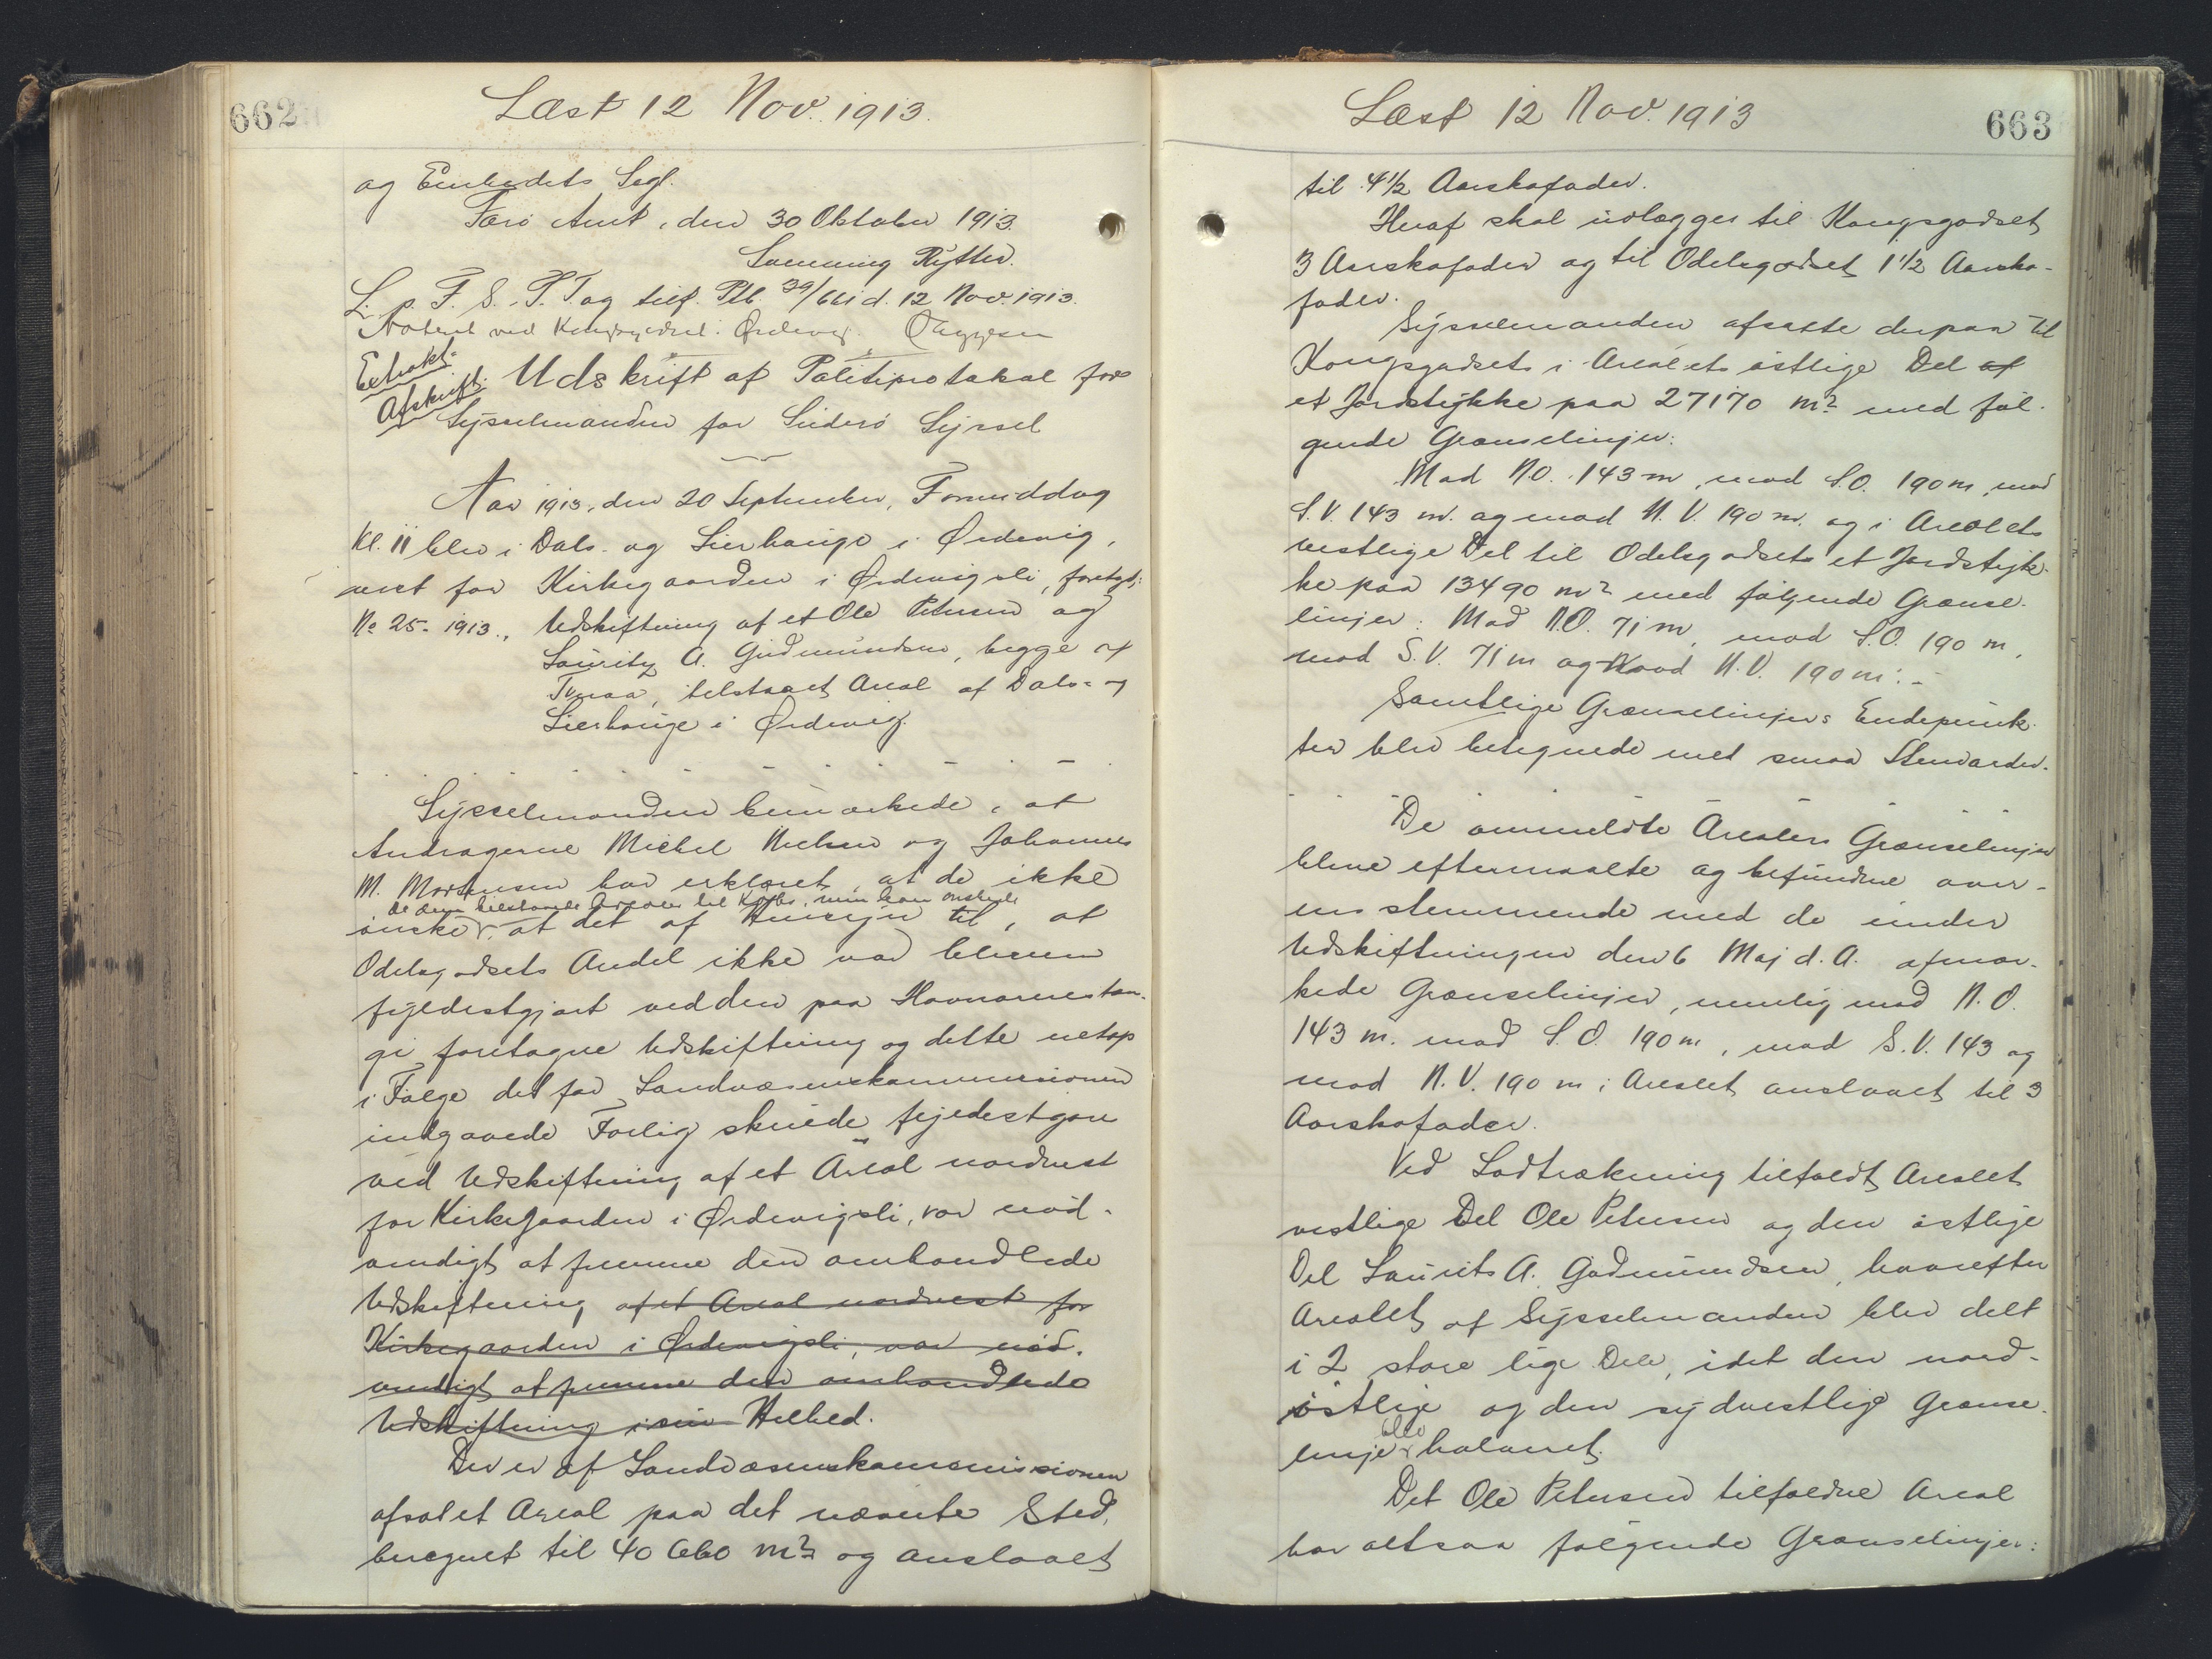 662
Læst 12 Nov. 1913.
og Embedets Segl.
Færø Amt, den 30 Oktober 1913.
Svenning Rytter.
L. p. F. S. P. T. og tilf. Ptb. 39/661 d. 12 Nov. 1913.
Noteret ved Kongsgodset. Ørdevig.
Extrakt-
Afskrift. Udskrift af Politiprotokol for
Sysselmanden for Suderø Syssel
Aar 1913, den 20 September, Formiddag
Kl. 11 blev i Dals- og Lierhauge i Ørdevig,
vest for Kirkegaarden i Ørdevigsli, foretget:
No 25-1913., Udskiftning af et Ole Petersen og
Lauritz A. Gudmundsen, begge af
Tvraa, tilstaaet Areal af Dals- og
Lierhauge i Ørdevig.
Sysselmanden bemærkede, at
Andragerne Michel Nielsen og Johannes
M. Mortensen har erklæret, at de ikke
de dem tilstaaede Arealer til Købs, men han ønskede
ønske at det af Hensyn til, at
Odelsgodsets Andel ikke var bleven
fyldestgjort ved den paa Havnarnestan-
gi foretagne Udskiftning og dette netop
i Følge det for Landvæsenskommissionen
indgaaede Forlig skulde fyldestgøre
ved Udskiftning af et Areal nordvest
for Kirkegaarden i Ørdevigsli, var nød-
vendigt at fremme den omhandlede
Udskiftning af et Areal nordvest for
Kirkegaarden i Ørdevigsli, var nød-
vendigt at fremme den omhandlede
Udskiftning i sin Helhed.
Der er af Landvæsenskommissionen
afsat et Areal paa det nævnte Sted,
beregnet til 40 660 m2 og anslaaet
Læst 12 Nov. 1913
663
til 4 1/2 Aarskofoder.
Heraf skal udlægges til Kongsgodset
3 Aarskofoder og til Odelsgodset 1 1/2 Aarsko-
foder.
Sysselmanden afsatte derpaa til
Kongsgodsets i Arealets østlige Del af
et Jordstykke paa 27170 m2 med føl-
gende Grænselinjer:
Mod N.O. 143 m, mod S.O. 190 m, mod
S.V. 143 m. og mod N.V. 190 m. og i Arealets
vestlige Del til Odelsgodsets et Jordstyk-
ke paa 13490 m2 med følgende Grænse-
linjer: Mod N.O. 71 m, mod S.O. 190 m,
mod S.V. 71 m og mod N.V. 190 m.-
Samtlige Grænselinjers Endepunk-
ter blev betegnede met smaa Stenvarder.
De ommeldte Arealers Grænselinjer
bleve eftermaalte og befundne over-
ensstemmende med de under
Udskiftningen den 6 Maj d. A. afmær-
kede Grænselinjer, nemlig mod N.O.
143 m. mod S.O. 190 m, mod S.V. 143 og
mod N.V. 190 m; Arealet anslaaet til 3
Aarskofoder.
Ved Lodtrækning tilfaldt Arealet
vestlige Del Ole Petersen og den østlige
Del Laurits A. Gudmundsen, hvorefter
Arealet af Sysselmanden blev delt
i 2 store lige Dele, idet den nord-
østlige og den sydvestlige Grænse-
linje blev halveret.
Det Ole Petersen tilfaldne Areal
har altsaa følgende Grænselinjer: